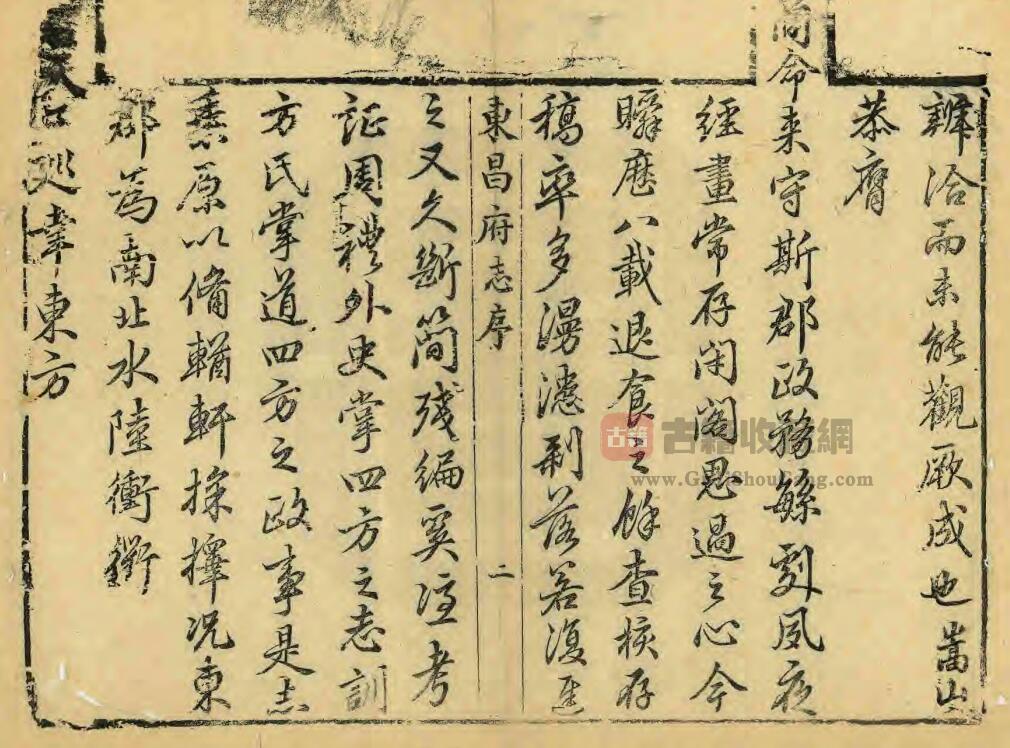 辦洽而未能觀厥成也嵩山
恭膺
簡命来守斯郡政務緐劇夙夜
經畫常存閉閣思過之心今
瞬歷八載退食之餘查核存
稿率多漫漶剥落若復遲
東昌府志序 二
之又久斷簡殘編奚考
証周禮外史掌四方之志訓
方氏掌道四方之政事是志
乘原以備輶軒採擇况東
郡為南北水陸衝衢
巡幸東方
古籍 古籍收藏網
www.GuJiShouCang.com